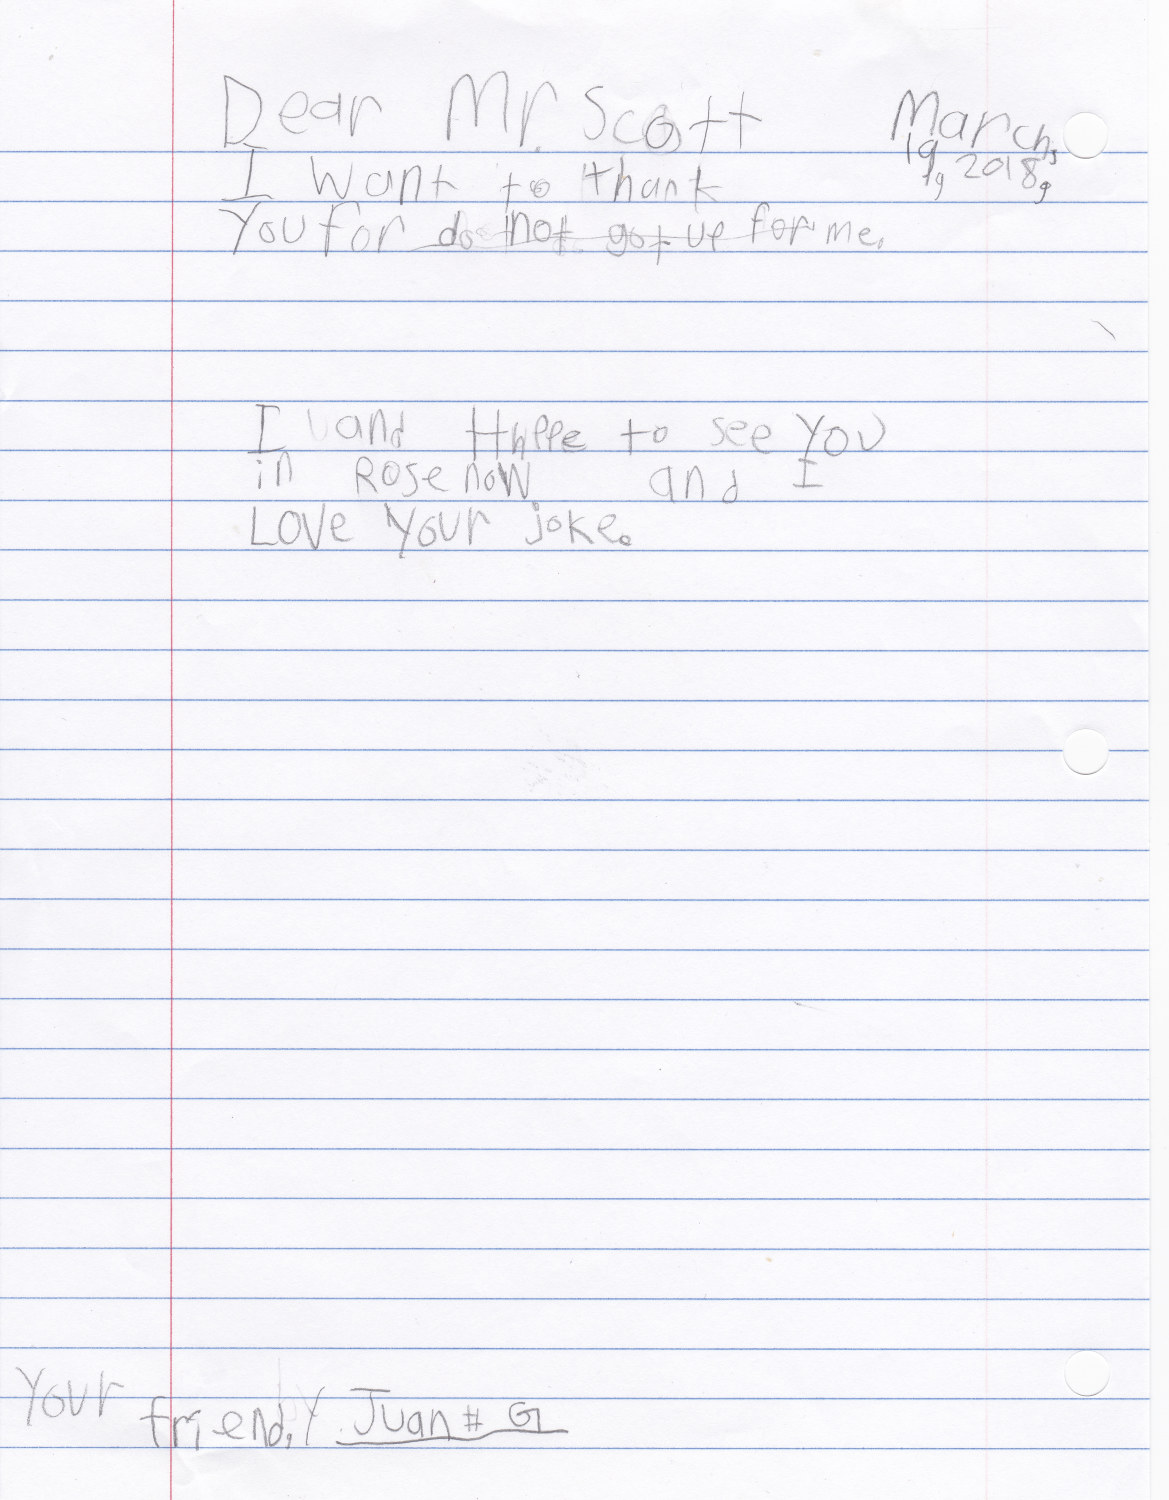 Dear Mr. Scott
March,
19, 2018,
I want to thank
You for do not got up for me.
I and Hhppe to see You
in Rosenow and I
Love Your joke.
Your
friend, Juan # G